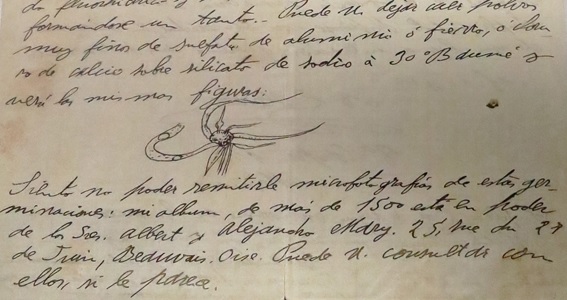 formándose un tanto.. Puede V. dejar caer polvos
muy finos de sulfato de aluminio ó fierro, ó cloru
ro de calcio sobre silicato de sodio à 30° Baumé y
verá las mismas figuras:
Siento no poder remitirle microfotografías de estas ger-
minaciones: mi album, de más de 1500 está en poder
de los Sres. Albert y Alejandro Mary. 25, rue du 27
de Juin, Beauvais. Oise. Puede V. consultar con
ellos, si le parece.